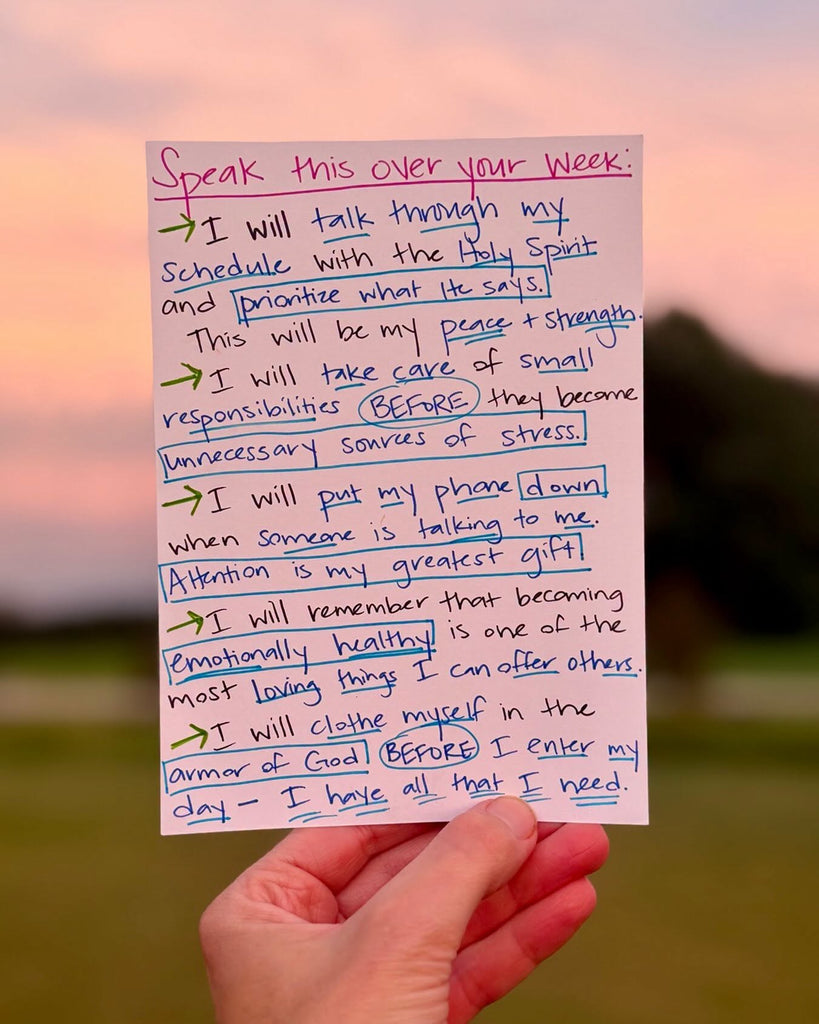 Speak this over your week:
→ I will talk through my
schedule with the Holy Spirit
and prioritize what He says.
This will be my peace + strength.
→ I will take care of small
responsibilities BEFORE they become
unnecessary sources of stress.
→ I will put my phone down
when someone is talking to me.
Attention is my greatest gift
→ I will remember that becoming
emotionally healthy is one of the
most loving things I can offer others.
→ I will clothe myself in the
armor of God BEFORE I enter my
day - I have all that I need.